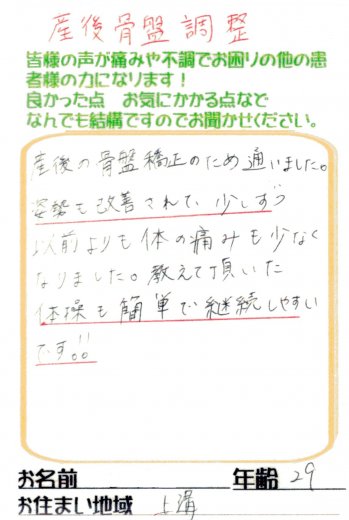 産後骨盤調整
皆様の声が痛みや不調でお困りの他の患
者様の力になります！
良かった点　お気にかかる点など
なんでも結構ですのでお聞かせください。
産後の骨盤矯正のため通いました。
姿勢も改善されて少しずつ
以前よりも体の痛みも少なく
なりました。教えて頂いた
体操も簡単で継続しやすい
です!!
お名前　年齢 29
お住まい地域　上溝